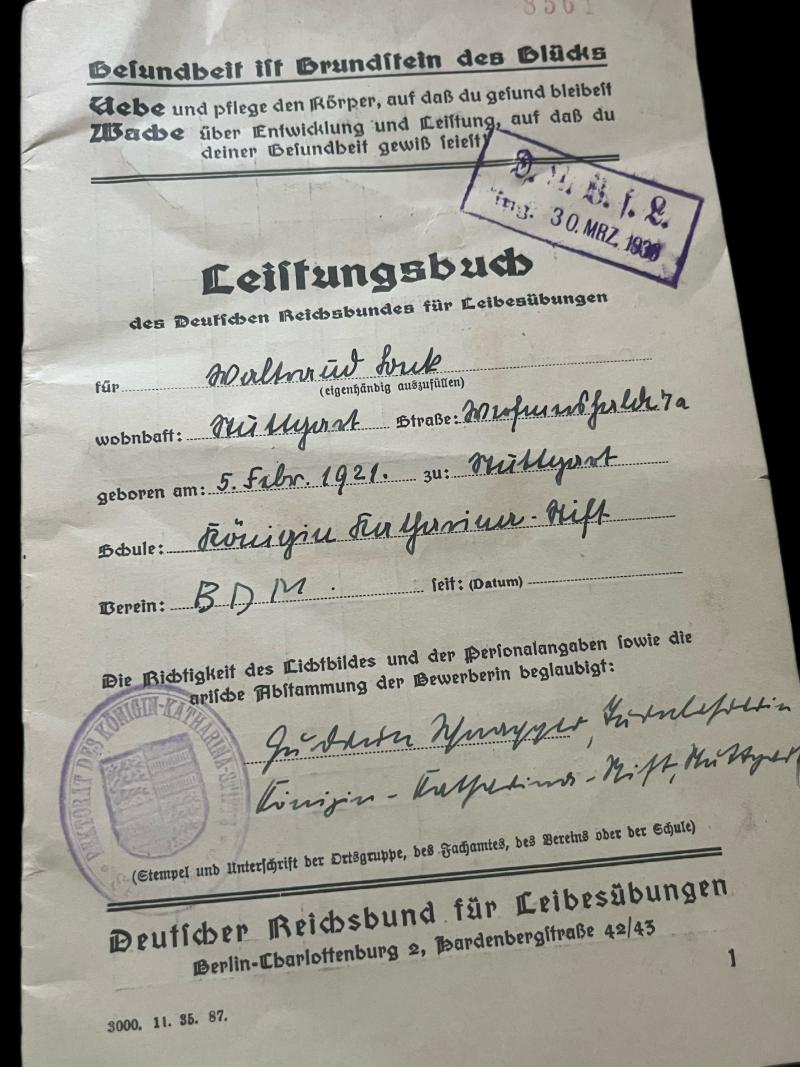 8561
Gesundheit ist Grundstein des Glücks
Uebe und pflege den Körper, auf daß du gesund bleibest
Wache über Entwicklung und Leistung, auf daß du
deiner Gesundheit gewiß seiest
D. R. B. f. L.
Eing. 30. MRZ. 1936
Leistungsbuch
des Deutschen Reichsbundes für Leibesübungen
für Waltraud
(eigenhändig auszufüllen)
wohnhaft: Stuttgart Straße: 7a
geboren am: 5. Febr. 1921. zu: Stuttgart
Schule: Königin Katharina-Stift
Verein: BDM. seit: (Datum)
Die Richtigkeit des Lichtbildes und der Personalangaben sowie die
arische Abstammung der Bewerberin beglaubigt:
Turnlehrerin
Königin-Katharina-Stift, Stuttgart
REKTORAT DES KÖNIGIN-KATHARINA-STIFTS
(Stempel und Unterschrift der Ortsgruppe, des Fachamtes, des Vereins oder der Schule)
Deutscher Reichsbund für Leibesübungen
Berlin-Charlottenburg 2, Hardenbergstraße 42/43
1
3000. 11. 35. 87.